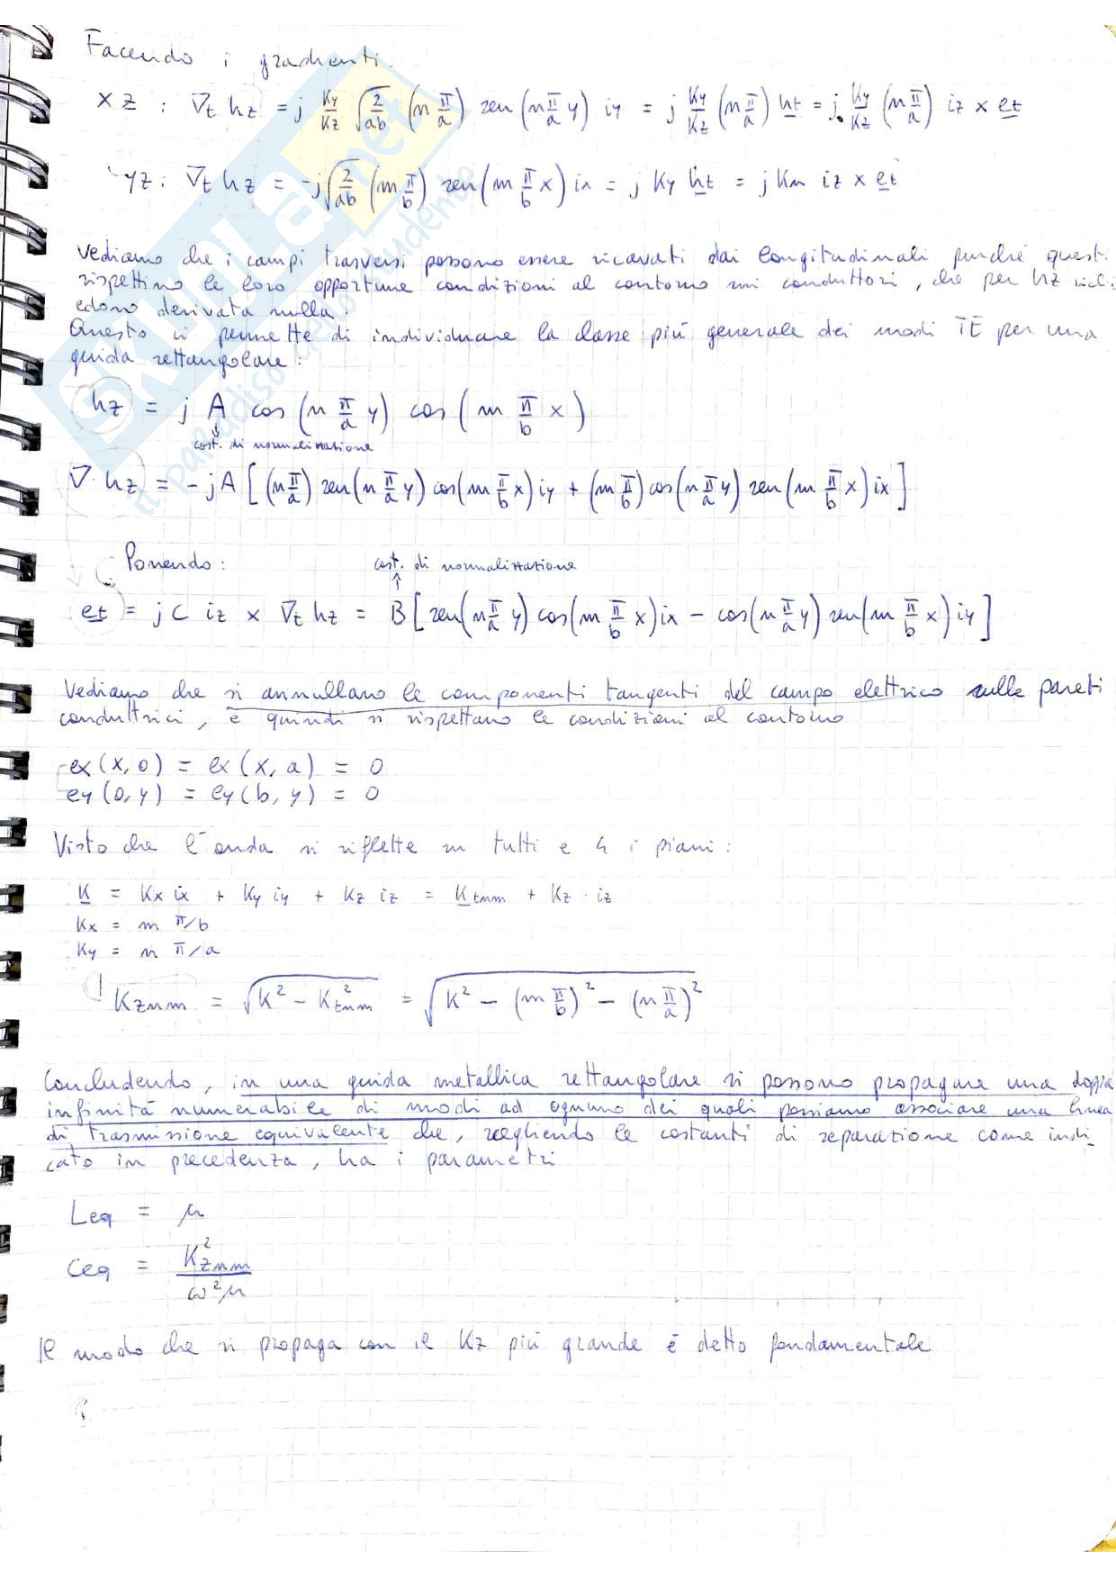 Facendo i gradienti.
xz : ∇t hz = j Ky/Kz √(2/ab) (n π/a) sen (n π/a y) iy = j Ky/Kz (n π/a) ht = j Ky/Kz (n π/a) iz x et
yz : ∇t hz = -j √(2/ab) (m π/b) sen (m π/b x) ix = j Ky ht = j Kn iz x et
Vediamo che i campi trasversi possono essere ricavati dai longitudinali purché questi
rispettino le loro opportune condizioni al contorno sui conduttori, che per hz richi
edono derivata nulla.
Questo ci permette di individuare la classe più generale dei modi TE per una
guida rettangolare:
hz = j A cos (n π/a y) cos (m π/b x)
cost. di normalizzazione
∇ hz = -jA [(n π/a) sen (n π/a y) cos (m π/b x) iy + (m π/b) cos (n π/a y) sen (m π/b x) ix]
Ponendo:
cost. di normalizzazione
et = j C iz x ∇t hz = B [sen (n π/a y) cos (m π/b x) ix - cos (n π/a y) sen (m π/b x) iy]
Vediamo che si annullano le componenti tangenti del campo elettrico sulle pareti
conduttrici, e quindi si rispettano le condizioni al contorno
ex (x, 0) = ex (x, a) = 0
ey (0, y) = ey (b, y) = 0
Visto che l'onda si riflette su tutti e 4 i piani:
K = Kx ix + Ky iy + Kz iz = Ktnm + Kz · iz
Kx = m π/b
Ky = n π/a
Kznm = √(K² - K²tnm) = √(K² - (m π/b)² - (n π/a)²)
Concludendo, in una guida metallica rettangolare si possono propagare una doppia
infinità numerabile di modi ad ognuno dei quali possiamo associare una linea
di trasmissione equivalente che, scegliendo le costanti di separazione come indi
cato in precedenza, ha i parametri
Leq = μ
Ceq = K²znm / ω²μ
Il modo che si propaga con il Kz più grande è detto fondamentale
SKUOLA.net
il paradiso dello studente